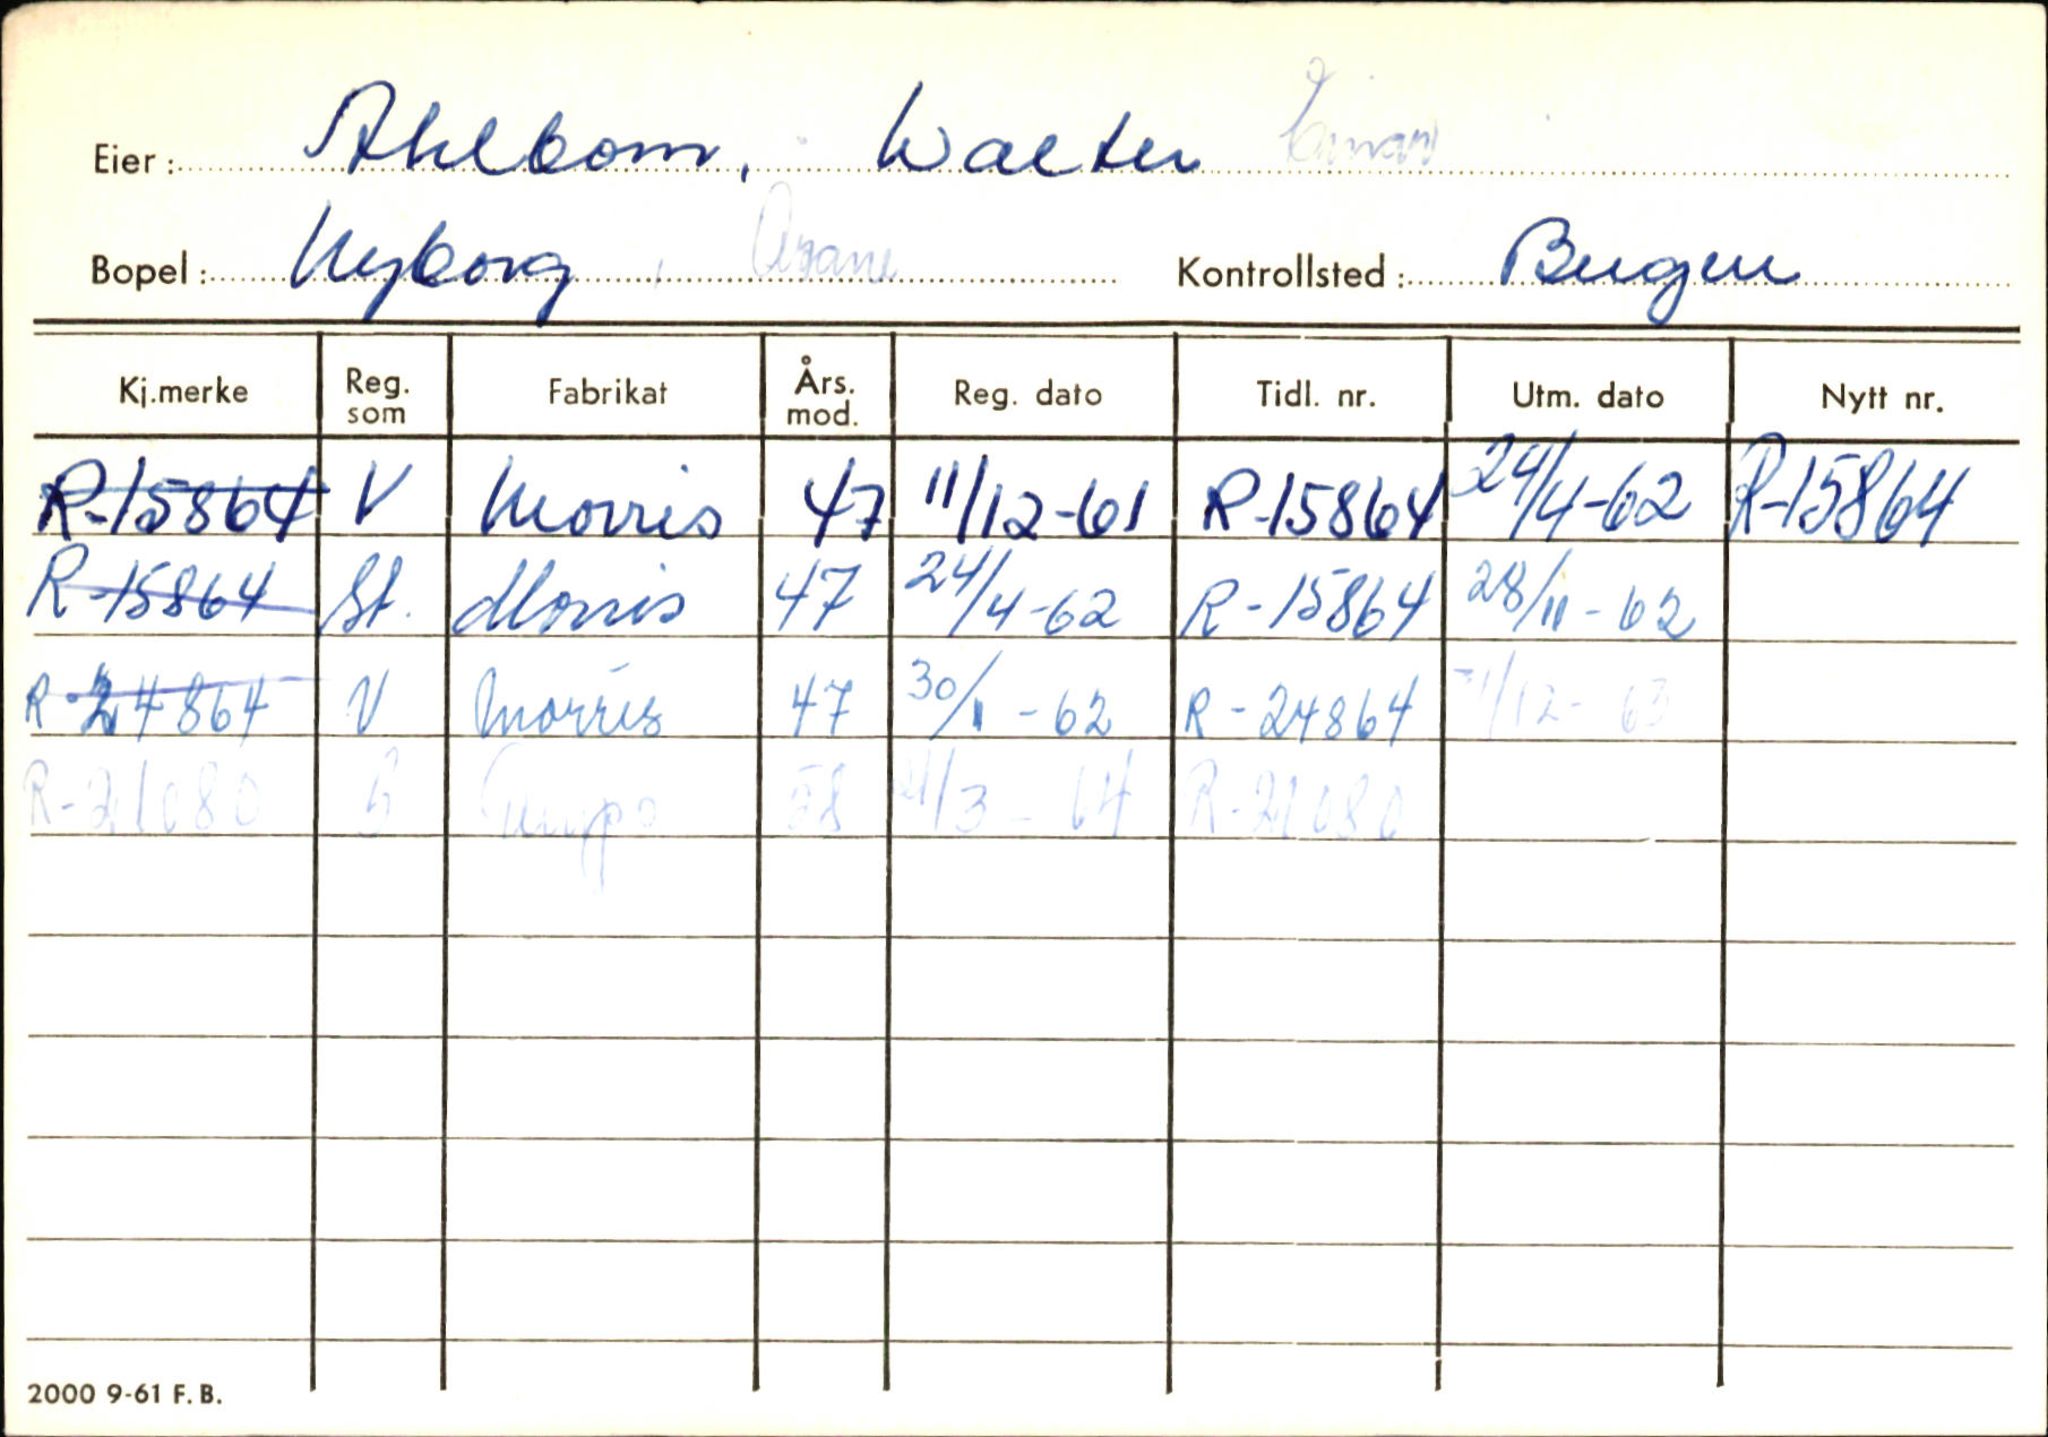 Eier: Ahlbom, Walter Einar
Bopel: Nyborg, Arane Kontrollsted: Bergen
Kj.merke Reg. som Fabrikat Års. mod. Reg. dato Tidl. nr. Utm. dato Nytt nr.
R-15864 V Morris 47 11/12-61 R-15864 24/4-62 R-15864
R-15864 St. Morris 47 24/4-62 R-15864 28/11-62
R-24864 V Morris 47 30/11-62 R-24864 /12-63
R-21080 58 /3-64 R-21080
2000 9-61 F.B.